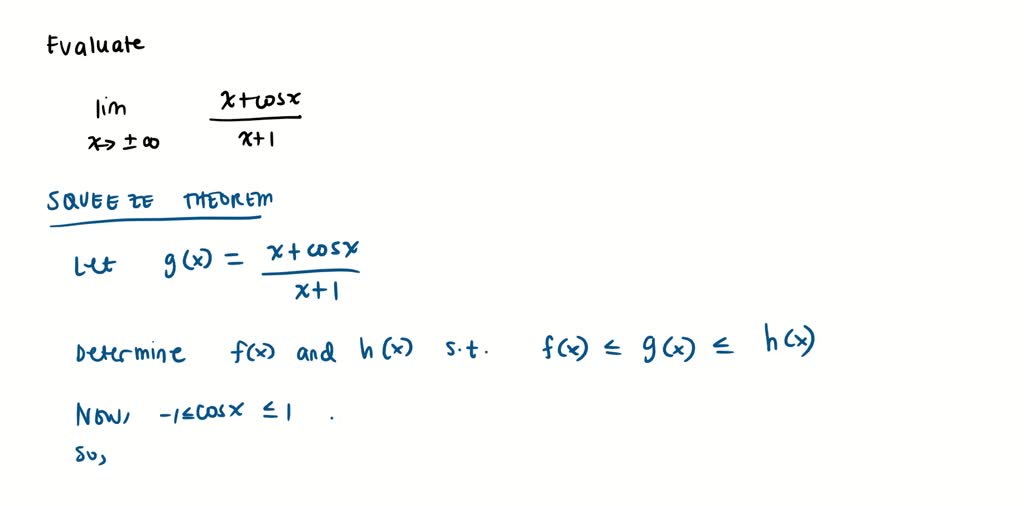 Evaluate
lim x→±∞ (x+cosx)/(x+1)
SQUEEZE THEOREM
Let g(x) = (x+cosx)/(x+1)
Determine f(x) and h(x) s.t. f(x) ≤ g(x) ≤ h(x)
Now, -1≤cosx ≤1 .
So,